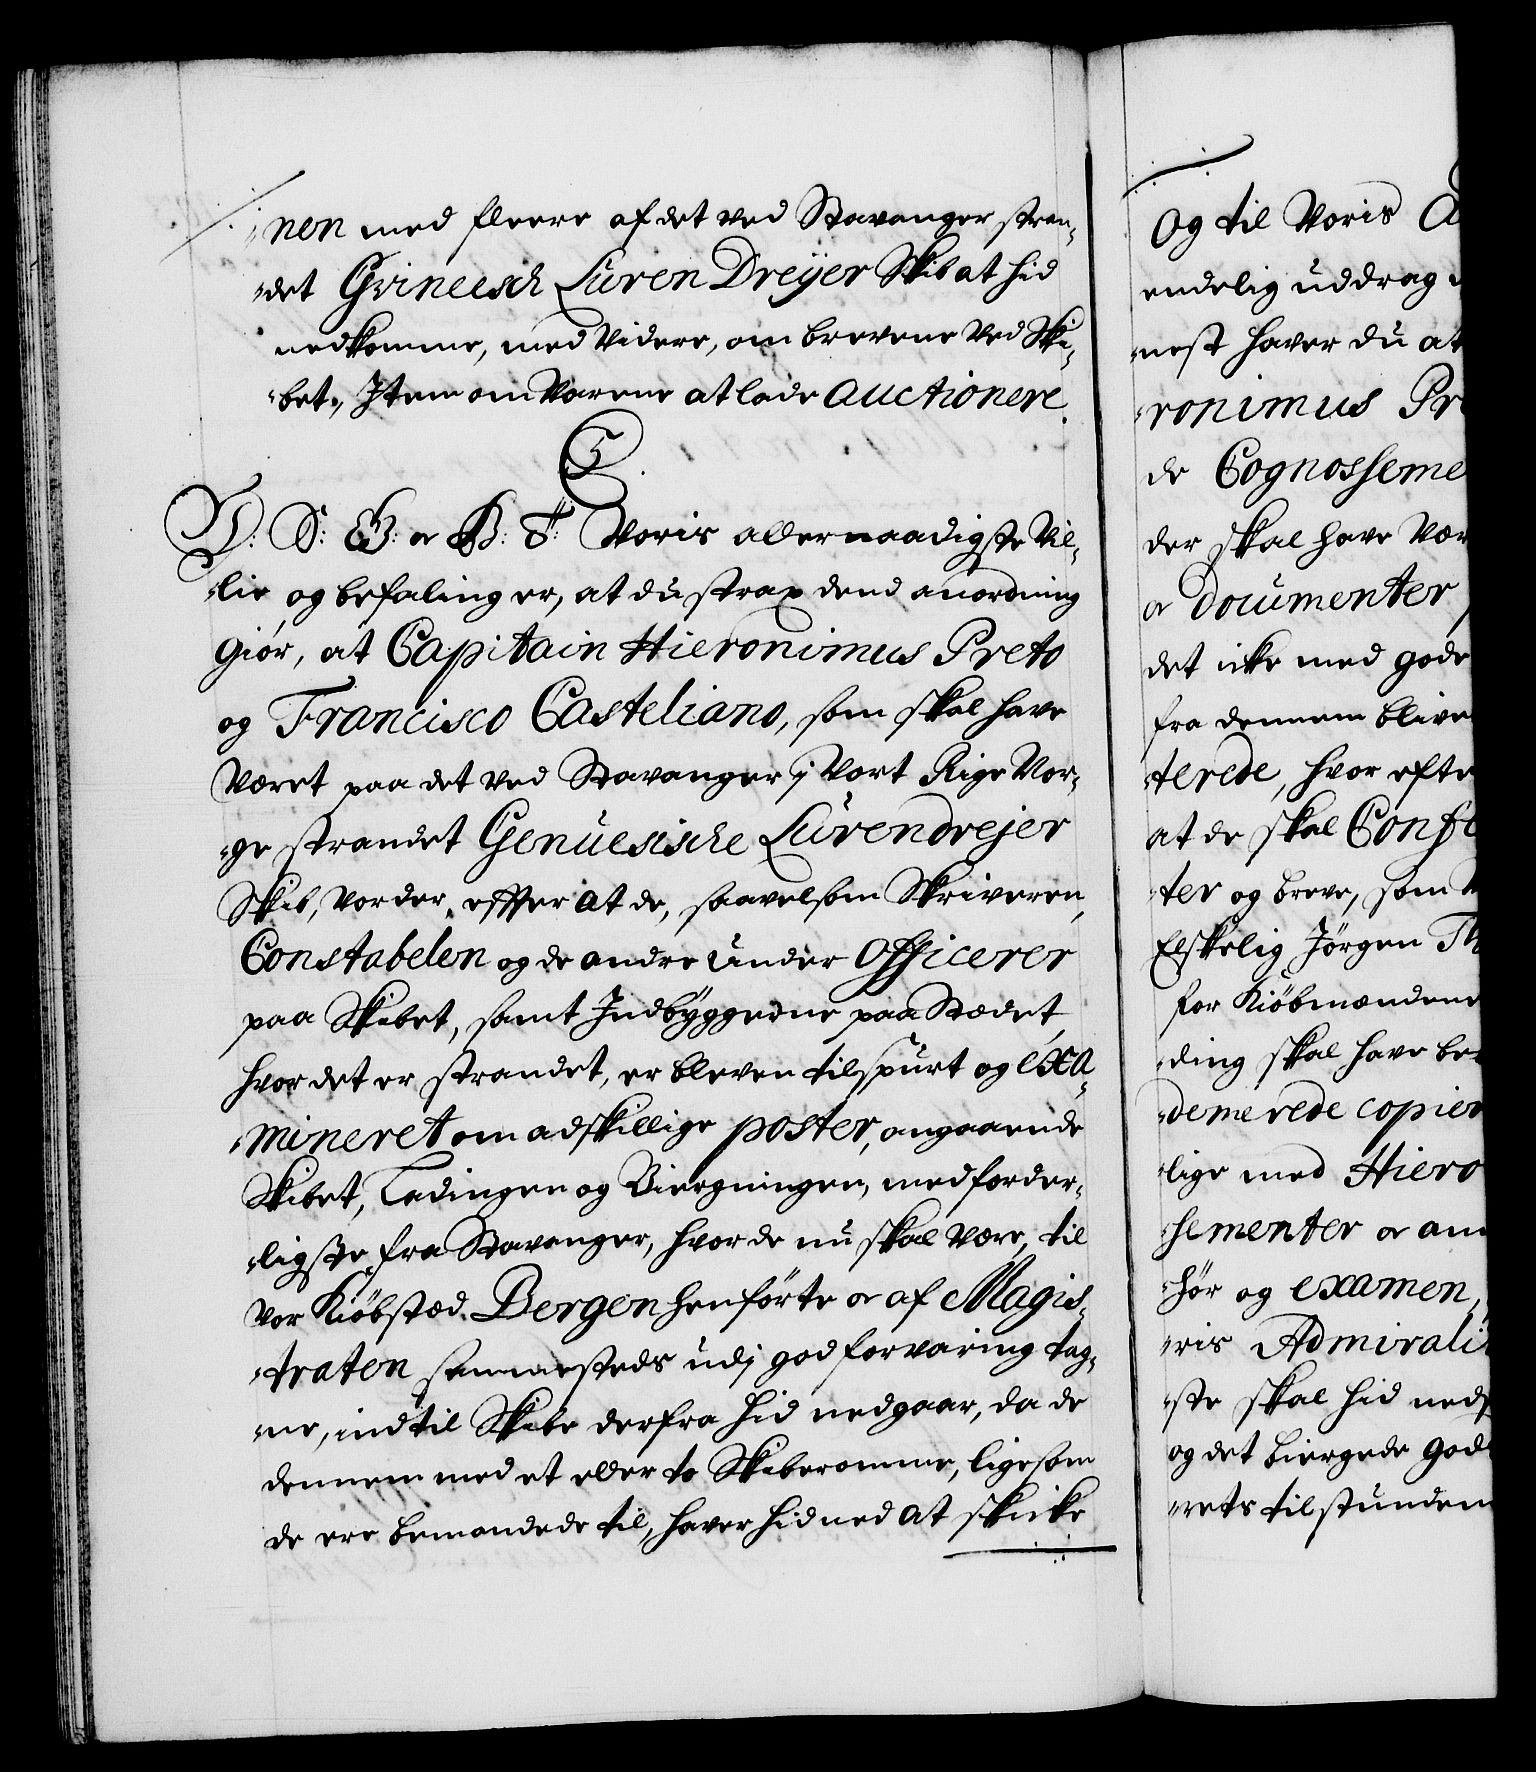 nen med fleere af det ved Stavanger stran-
det Grineesch Luren Dreyer Skib at hid
nedkomme, med videre, om brevene ved Ski-
bet, Item om Varene at lade Auctionere.
C
V: S: G: or B: T: Voris allernaadigste Vil-
lie og befaling er, at du strax dend anordning
giör, at Capitain Hieronimus Preto
og Francisco Casteliano, som skal have
Været paa det ved Stavanger j Vort Rige Nor-
ge strandet Genuesische Lurendrejer
Skib, vorder, effter at de, saavelsom Skriveren,
Constabelen og de andre Under Officerer
paa Skibet, samt Indbyggerne paa Stædet,
hvor det er strandet, er bleven tilspurt og exa-
mineret om adskillige poster, angaaende
Skibet, Ladingen og Biergningen, med forder-
ligste fra Stavanger, hvor de nu skal være, til
vor Kiöbstæd Bergen henförte or af Magis-
traten sammesteds udj god forvaring tag-
ne, indtil Skibe derfra hid nedgaar, da de
dennem med et eller to Skiberomme, ligesom
de ere bemandede til, haver hid ned at skicke
Og til Voris
endelig uddrag
nest haver du at
ronimus Pr
de Cognosseme
der skal have vær
or Documenter
det icke med gode
fra dennem blive
terede, hvor efte
at de skal Confe
ter og breve, som
Elskelig Jörgen Th
for Kiöbmændene
ding skal have be
demerede copier
lige med Hiero
sementer or an
hör og examen,
ris Admirali
ste skal hid neds
og det biergede God
rets tilstunden